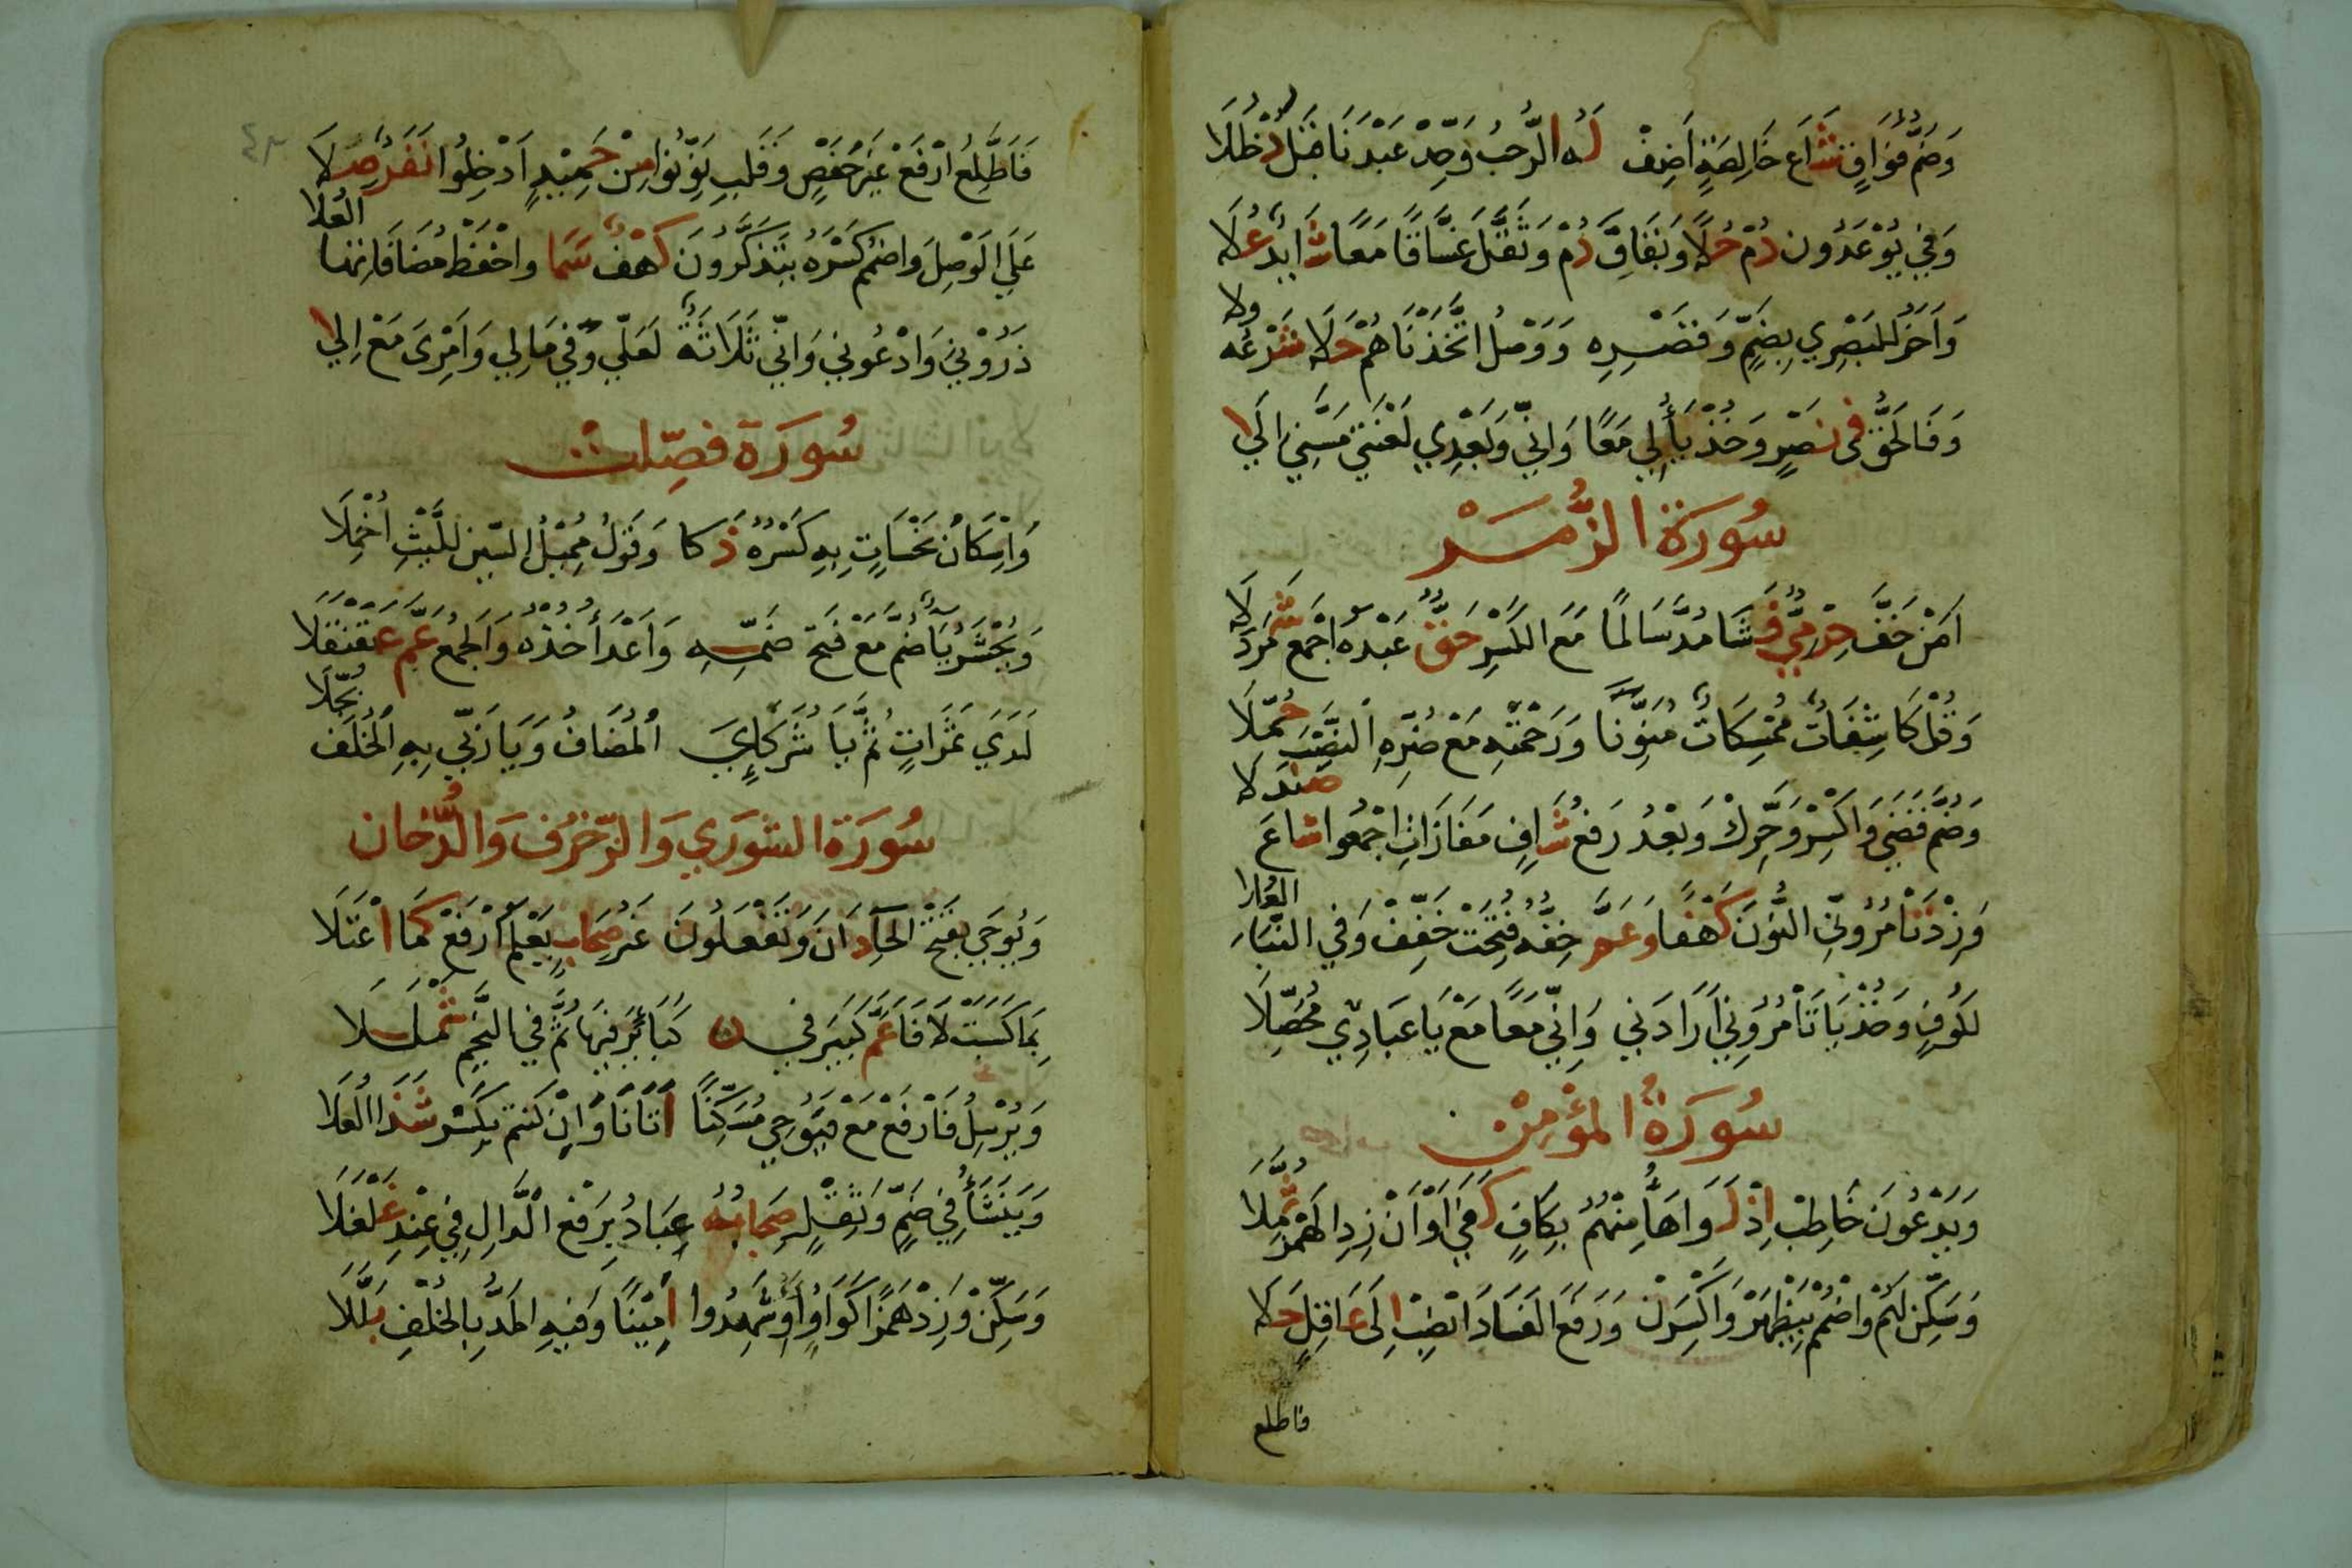 وَضَمُّ فَوَاقٍ شَاعَ خَالِصَةٍ اَضِفْ لَهُ الرَّحْبُ وَحِّدْ عَبْدَنَا قَبْلُ دُخْلُلَا
وَفِي يُوْعَدُونَ دُمْ حُلًا وَبِقَافِ دُمْ وَثَقَّلَ غَسَّاقًا مَعًا شَايِدٌ عُلَا
وَاَخَرُ لِلبَصْرِي بِضَمٍّ وَقَصْرِهِ وَوَصْلُ اتَّخَذْنَاهُمْ حَلَا شَرْعُهُ وِلَا
وَفَالحَقُّ فِى نَصْرٍ وَخُذْ يَأَلِي مَعًا وَاِنِّي وَبَعْدِي لَعْنَتِي مَسَّنِيَ اِلَى
سُورَة الزُّمَرْ
اَمَنْ خَفَّ حِرْمِيٌّ فَشَا مُدَّ سَالِمًا مَعَ الكَسْرِ حَقٌّ عَبْدَهُ اجْمَعْ شَمَرْدَلَا
وَقُلْ كَاشِفَاتٌ مُمْسِكَاتٌ مُنَوِّنًا وَرَحْمَتِهِ مَعْ ضُرِّهِ النَّصْبُ حُمِّلَا
وَضُمَّ قَضَى وَاكْسِرْ وَحَرِّكْ وَبَعْدُ رَفْعُ شَافٍ مَفَازَاتٍ اجْمَعُوا شَاعَ صَنْدَلَا
وَزِدْ تَامُرُونِّي النُّوْنَ كَهْفًا وَعَمَّ خِفُّهُ فُتِحَتْ خَفِّفْ وَفِي النَّبَاِ العُلَا
لِكُوفٍ وَخُذْ يَا تَأْمُرُونِي اَرَادَنِي وَاِنِّي مَعًا مَعْ يَا عِبَادِي مُحَصِّلَا
سُورَةُ المؤْمِنْ
وَيَدْعُونَ خَاطِبْ اِذْ لَوَا هَاءُ مِنْهُمُ بِكَافٍ كَفَى اَوْ اَنْ زِدِ الهَمْزَ ثُمَّلَا
وَسَكِّنْ لَهُمْ وَاضْمُمْ بِيَظْهَرَ وَاكْسِرَنْ وَرَفْعَ الفَسَادَ انْصِبْ اِلَى عَاقِلٍ حَلَا
فاطلع
٤٢
فَاَطَّلِعَ ارْفَعْ غَيْرَ حَفْصٍ وَقَلْبِ نَوِّنُوا مِنْ حَمِيْدٍ اَدْخِلُوا نَفَرٌ صِلَا
عَلَى الوَصْلِ وَاضْمُمْ كَسْرَهُ يَتَذَكَّرُونَ كَهْفٌ سَمَا وَاحْفَظْ مُضَافَاتِهَا العُلَا
ذَرُوْنِيَ وَادْعُونِي وَاِنِّي ثَلَاثَةٌ لَعَلِّي وَفِي مَالِي وَاَمْرِىَ مَعْ اِلى
سُورَة فصِّلت
وَاِسْكَانُ نَحْسَاتٍ بِهِ كَسْرُهُ ذَكا وَقَوْلُ مُمِيْلِ السّينِ لِلَّيْثِ اُخْمِلَا
وَيُحْشَرُ يَاءٌ ضُمَّ مَعْ فَتْحِ ضَمِّهِ وَاَعْدَاءُ خُذْهُ وَالجَمْعُ عَمَّ عَقَنْقَلَا
لَدَي ثَمَرَاتٍ ثُمَّ يَا شُرَكَاءِيَ المُضَافُ وَيَا رَبِّي بِهِ الخُلْفُ بُجِّلَا
سُورَة الشورَي وَالزّخرُف وَالدُّخان
وَيُوحَي بِفَتْحِ الحَآءِ دَانَ وَيَفْعَلُونَ غَيْرُ صِحَابٍ يَعْلَمَ ارْفَعْ كَمَا اعْتَلَا
بِمَا كَسَبَتْ لَا فَاءَ عَمَّ كَبِيْرَ فِي كَبَائِرَ فِيْهَا ثُمَّ فِي النَّجْمِ شَمْلَلَا
وَيُرْسِلُ فَارْفَعْ مَعْ فَيُوْحِي مُسَكِّنًا اَتَانَا وَاِنْ كنتم بِكَسْرٍ شَذَا العُلَا
وَيَنْشَأُ فِي ضَمٍّ وَثِقْلٍ صِحَابُهُ عِبَادُ بِرَفْعِ الدَّالِ فِي عِنْدِ غَلْغَلَا
وَسَكِّنْ وَزِدْ هَمْزًا كَوَاوٍ أَؤُشْهِدُوا اَمِيْنًا وَفِيهِ المَدُّ بِالخُلْفِ بَلَّلَا